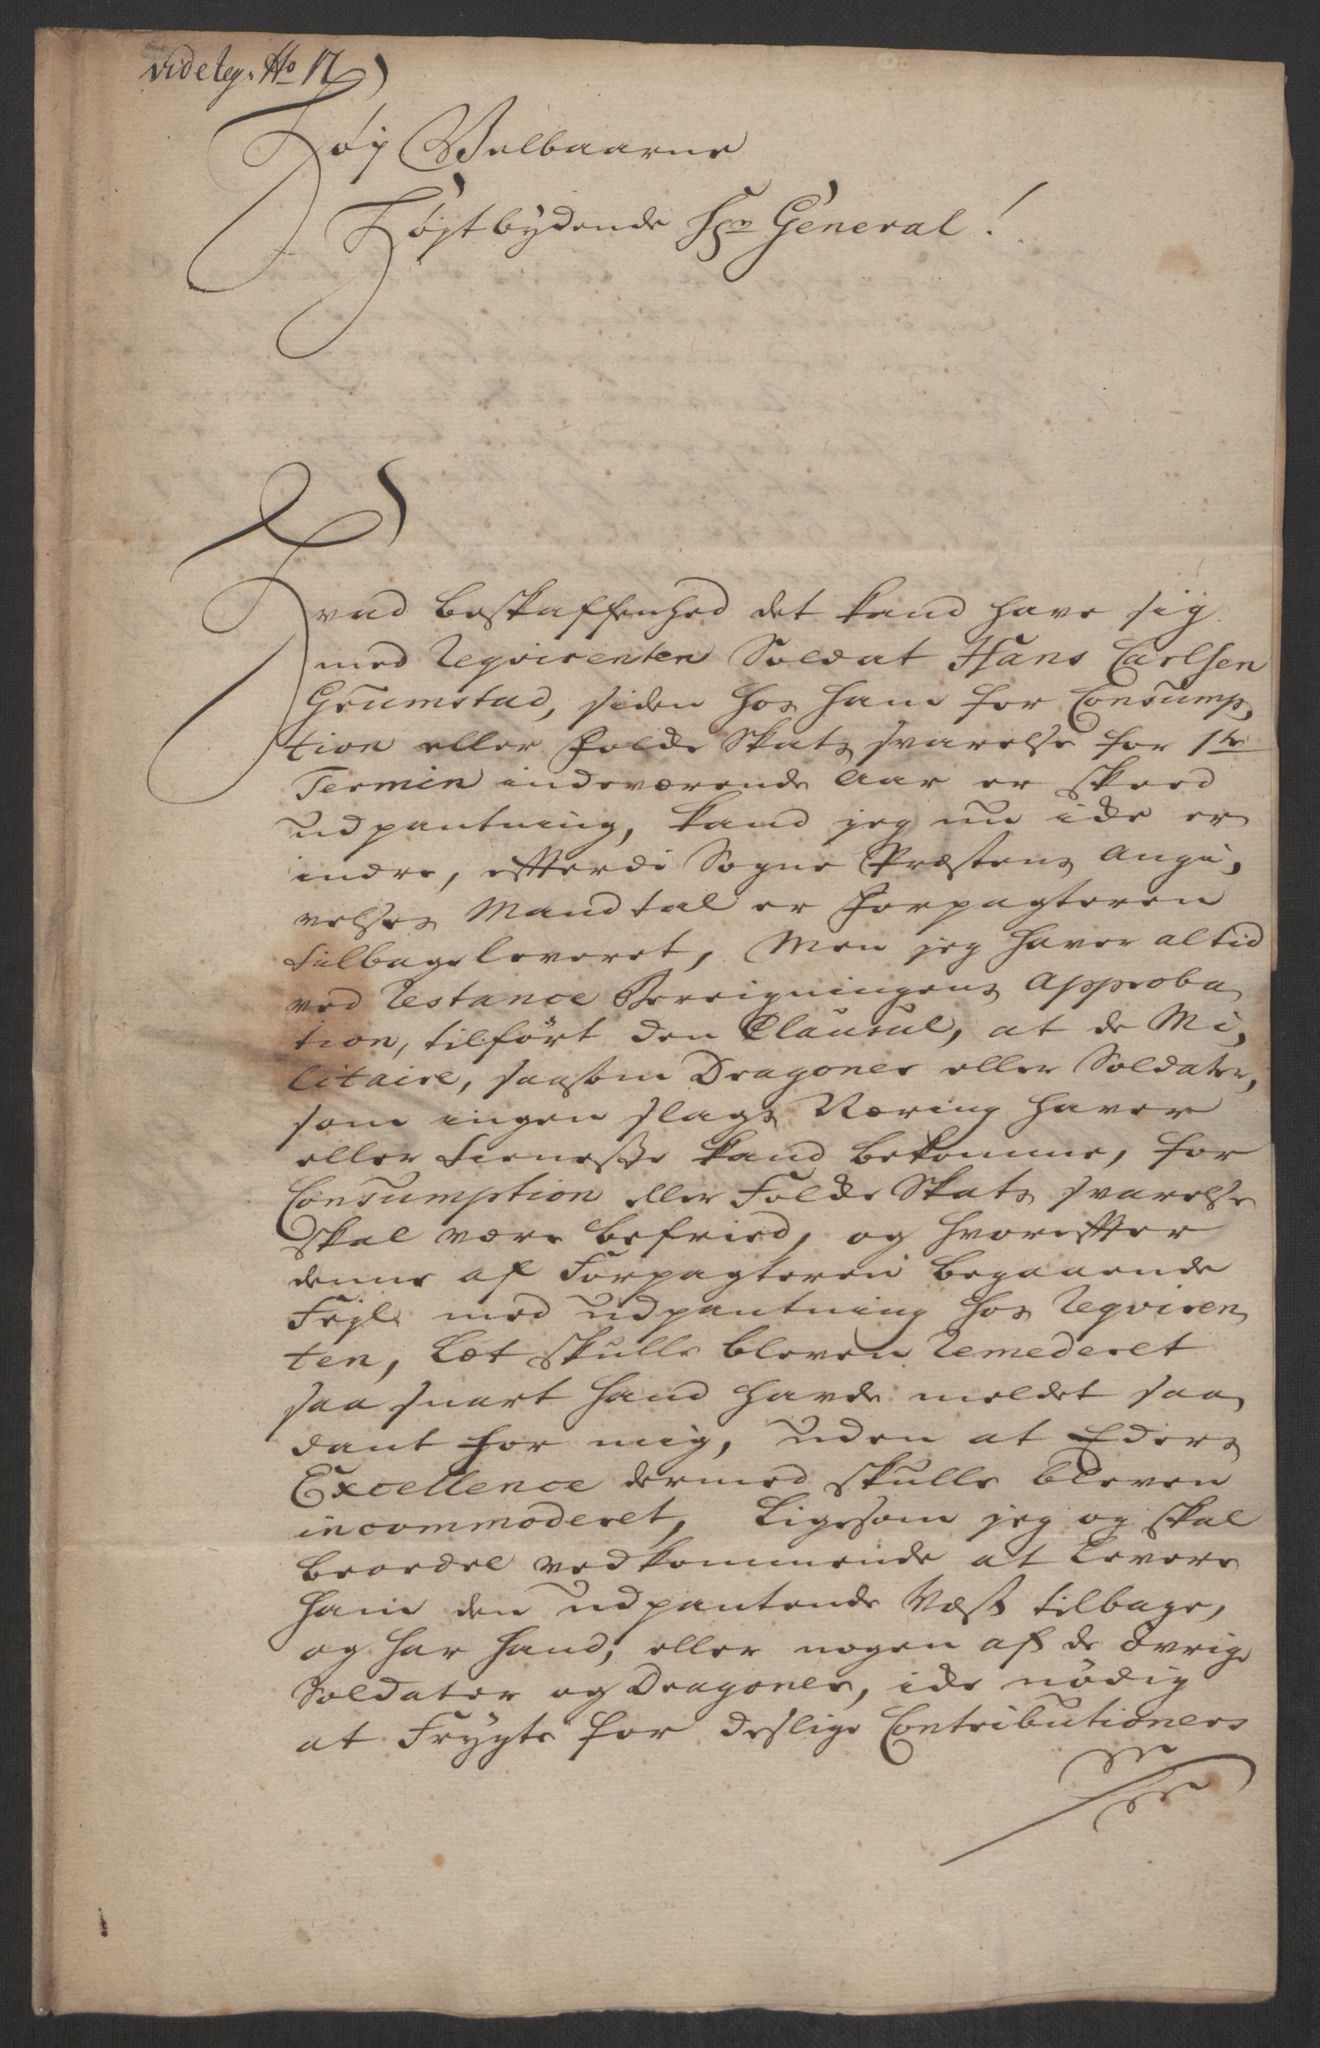 vide reg. No 17
Høy Velbaarne
Høystbydende Hr General!
Hvad beskaffenhed det kand have sig
med Reqvirenten Soldat Hans Carlsen
Grumstad, siden hos ham for Consump,
tion eller Folde Skats svarelse for 1te
Termin indeværende Aar er skeed
udpantning, kand jeg nu icke er
indre, efterdi Sogne Præstens Angi,
velses Mandtal er Forpagteren
tilbageleveret, Men jeg haver altid
ved Restance Beregningens Approba
tion, tilført den Clausul, at de Mi,
litaire, saasom Dragoner eller Soldater,
som ingen slags Næring haver
eller Tieneste kand bekomme, for
Consumption eller Folde Skats svarelse
skal være befried, og hvorefter
denne af Forpagteren begaaende
Fejl med udpantning hos Reqviren
ten, Læt skulle bleven Remederet
saa snart hand havde meldet saa
dant for mig, uden at Eders
Excellence dermed skulle bleven
incommoderet, Ligesom jeg og skal
beordre vedkommende at Levere
ham den udpantende Væst tilbage,
og har hand, eller nogen af de øvrige
Soldater og Dragoner, icke nødig
at Frygte for deslige Contributioners